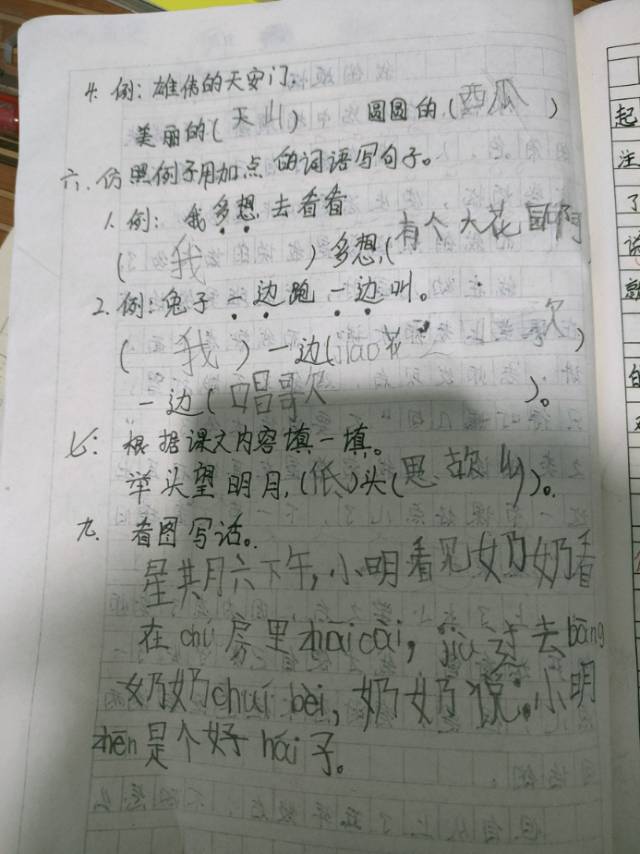 4. 例：雄伟的天安门。
美丽的（天山） 圆圆的（西瓜）
六、仿照例子用加点的词语写句子。
1. 例：我多想去看看
（我）多想（有个大花园啊
2. 例：兔子一边跑一边叫。
（我）一边（jiao花）
一边（唱歌）。
七：根据课文内容填一填。
举头望明月，（低）头（思故乡）。
九、看图写话。
星其月六下午，小明看见奶奶看
在chú房里zhāicài，jiù过去bāng
奶奶chuí bèi，奶奶说：小明
zhēn是个好hái子。